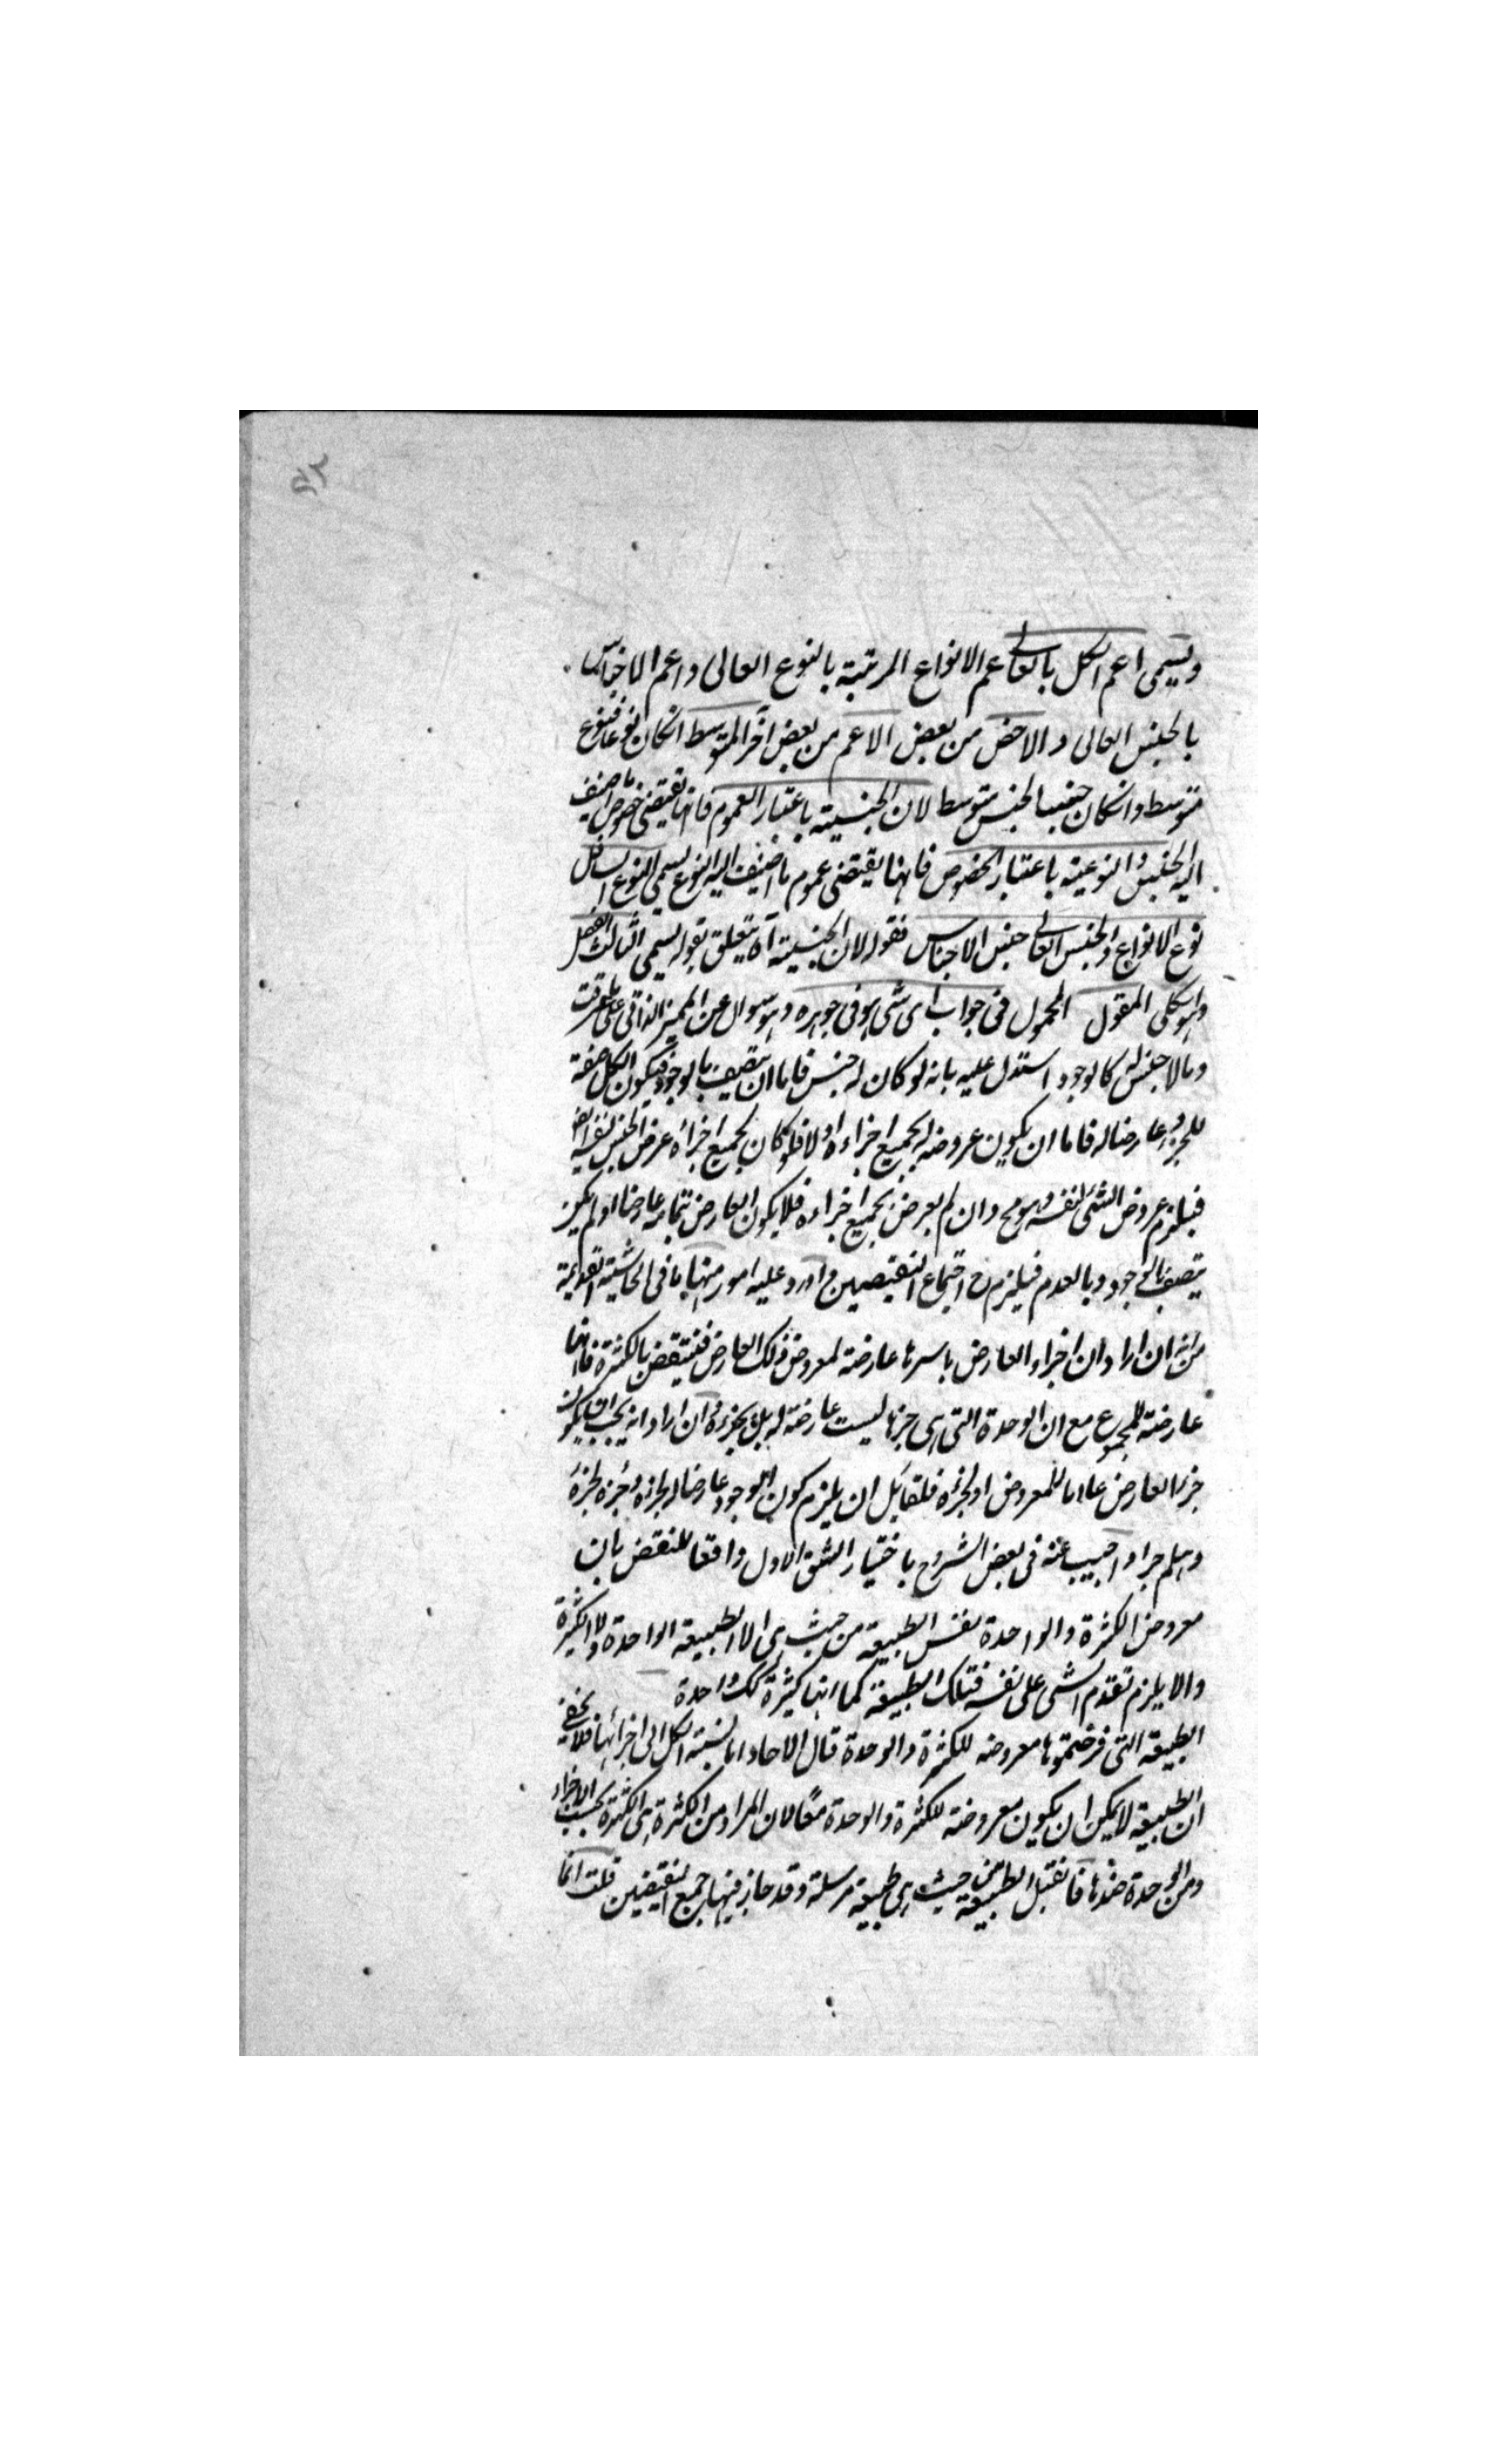 ويسمى اعم الكل بالعالى اعم الانواع المرتبة بالنوع العالى واعم الاجناس
بالجنس العالى والاخص من بعض الاعم من بعض آخر المتوسط انكان نوعا فنوع
متوسط وانكان جنسا فجنس متوسط لان الجنسية باعتبار العموم فانها تقتضى خصوص ما اضيف
اليه الجنس والنوعية باعتبار الخصوص فانها يقتضى عموم ما اضيف اليه النوع يسمى النوع السافل
نوع الانواع والجنس العالى جنس الاجناس فقوله لان الجنسية آه يتعلق بقوله يسمى الثالث الفصل
وهو الكلى المقول المحمول فى جواب اى شى هو فى جوهره وهو سوال عن المميز الذاتى على ما عرفت
ومالا جنس له كالوجود استدل عليه بانه لو كان له جنس فاما ان يتصف بالوجود فيكون الكل صفة
للجزء وعارضا له فاما ان يكون عروضه له بجميع اجزاءه اولا فلو كان بجميع اجزاءه عرض الجنس لنفسه ايضا
فيلزم عروض الشئ لنفسه وهو مح وان لم يعرض بجميع اجزاءه فلا يكون العارض بتمامه عارضا او لم يكن
يتصف بالوجود وبالعدم فيلزم ح اجتماع النقيضين واورد عليه امور منها ما فى الحاشية القديمة
من انه ان اراد ان اجزاء العارض باسرها عارضة لمعروض ذلك العارض فينتقض بالكثرة فانها
عارضة للمجموع مع ان الوحدة التى هى جزها ليست عارضة له بل بجزءه وان اراد انه يجب ان يكون
جزء العارض عارضا للمعروض او لجزءه فلقائل ان يلزم كون الوجود عارضا له لجزءه وجزءه لجزء
وهلم جرا واجيب عنه فى بعض الشروح باختيار الشق الاول دافعا للنقض بان
معروض الكثرة والواحدة نفس الطبيعة من حيث هى لا الطبيعة الواحدة ولا الكثيرة
والا يلزم تقدم الشى على نفسه فتلك الطبيعة كما انها كثيرة كك واحدة
الطبيعة التى فرضتموها معروضه للكثرة والوحدة قال الاحاد اما نسبة الكل الى اجزائها فلا يخفى
ان الطبيعة لا يمكن ان يكون معروضة للكثرة والوحدة معا لان المراد من الكثرة هى الكثرة بحسب الاجزاء
ومن الوحدة ضدها فانقبل الطبيعة من حيث هى طبيعة مرسلة وقد جاز فيها جمع النقيضين قلت انما